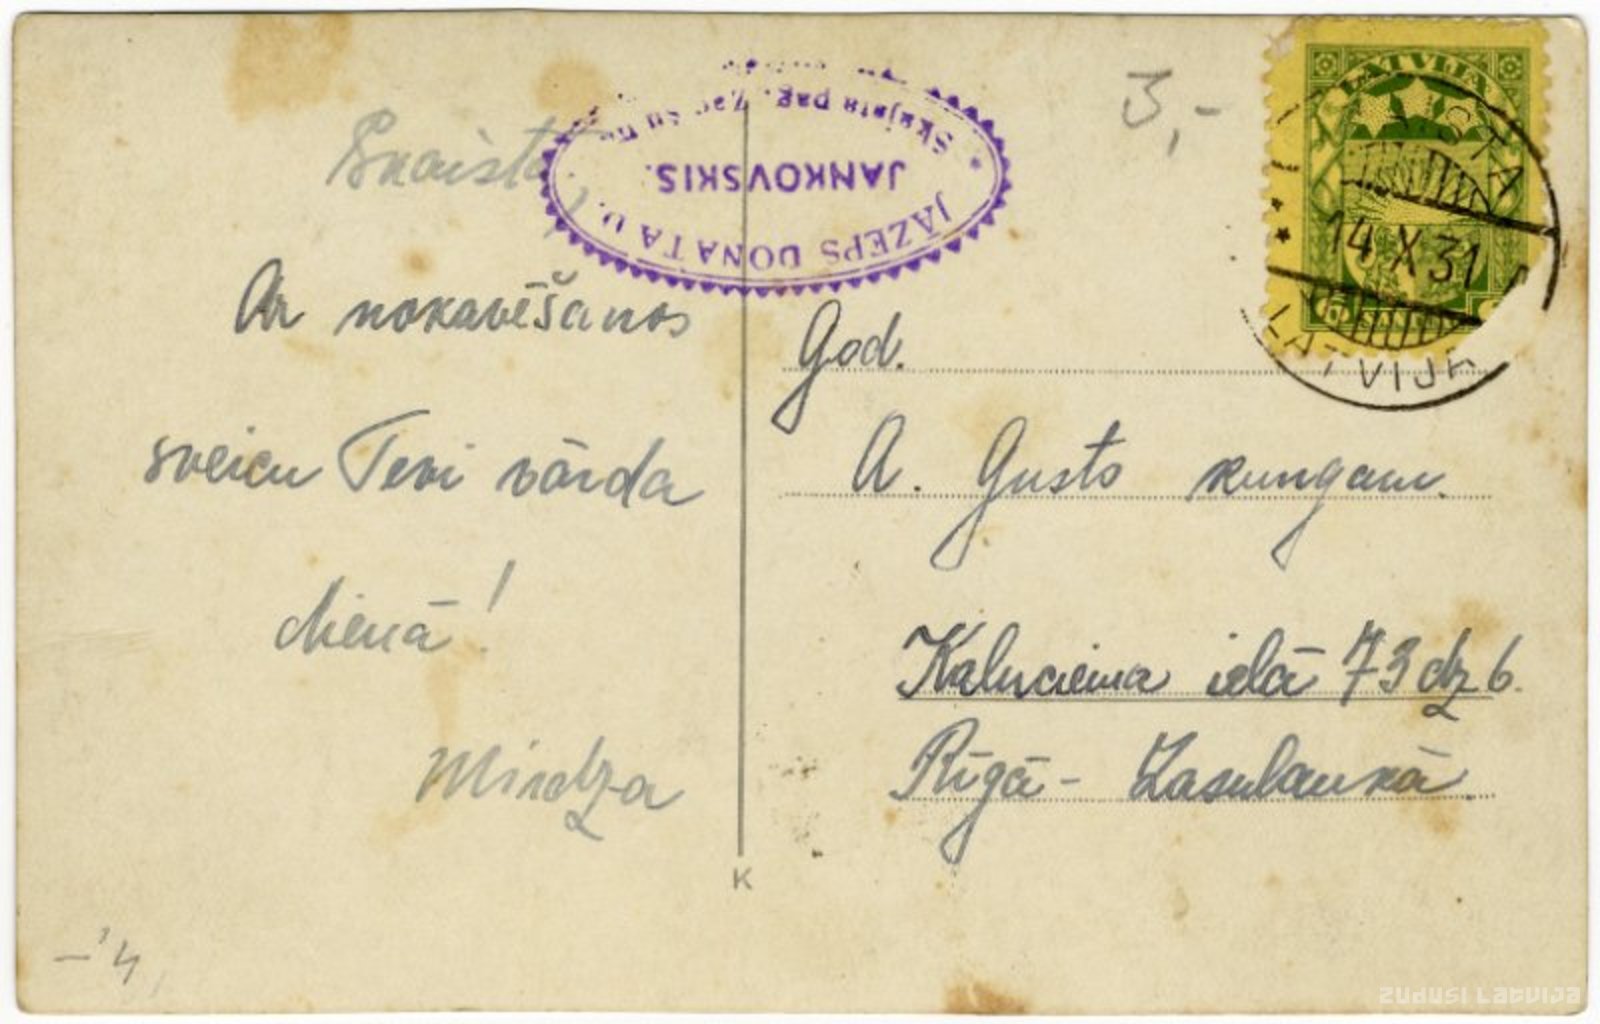 Skaista,
Ar nokavēšanos
sveicu Tevi vārda
dienā!
Mirdza
-'4
K
Skajsta pag.
JANKOVSKIS.
JĀZEPS DONATA d.
3,-
LATVIJA
14 X 31
LATVIJA
God.
A. Gusts kungam.
Kalnciema ielā 73 dz 6.
Rīgā - Zasulaukā.
ZUDUSI LATVIJA